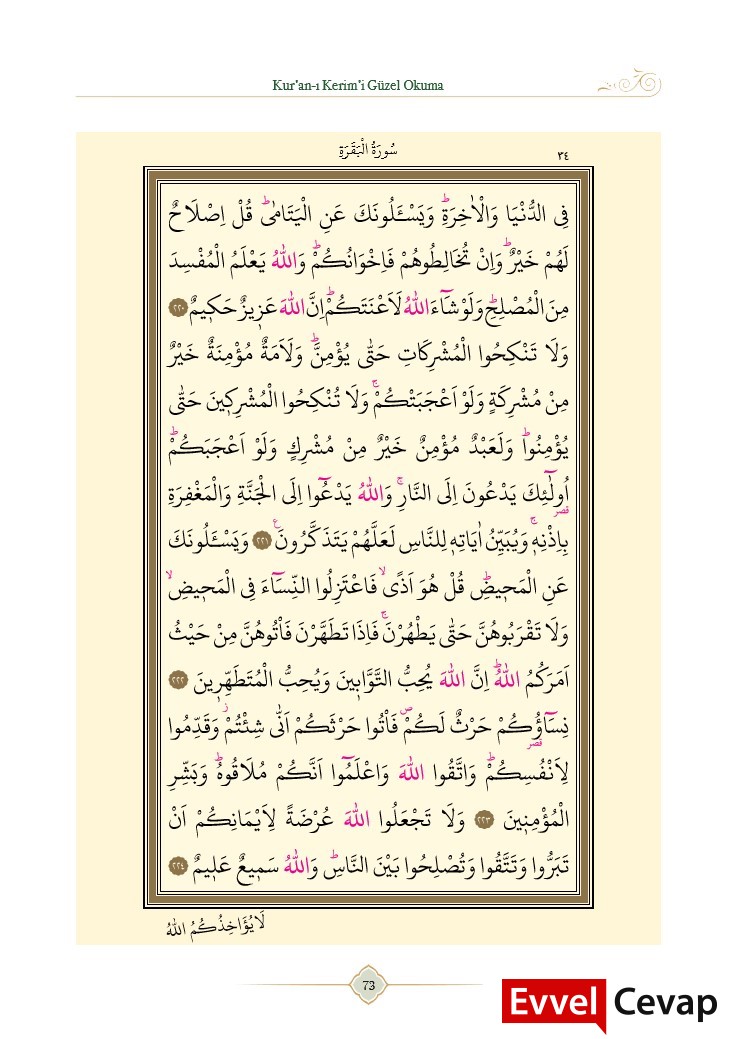 Kur'an-ı Kerim'i Güzel Okuma
سُورَةُ الْبَقَرَةِ ٣٤
فِى الدُّنْيَا وَالْاٰخِرَةِۜ وَيَسْـَٔلُونَكَ عَنِ الْيَتَامٰىۜ قُلْ اِصْلَاحٌ
لَهُمْ خَيْرٌۜ وَاِنْ تُخَالِطُوهُمْ فَاِخْوَانُكُمْۜ وَاللّٰهُ يَعْلَمُ الْمُفْسِدَ
مِنَ الْمُصْلِحِۜ وَلَوْ شَٓاءَ اللّٰهُ لَاَعْنَتَكُمْۜ اِنَّ اللّٰهَ عَزٖيزٌ حَكٖيمٌ ٢٢٠
وَلَا تَنْكِحُوا الْمُشْرِكَاتِ حَتّٰى يُؤْمِنَّۜ وَلَاَمَةٌ مُؤْمِنَةٌ خَيْرٌ
مِنْ مُشْرِكَةٍ وَلَوْ اَعْجَبَتْكُمْۚ وَلَا تُنْكِحُوا الْمُشْرِكٖينَ حَتّٰى
يُؤْمِنُواۜ وَلَعَبْدٌ مُؤْمِنٌ خَيْرٌ مِنْ مُشْرِكٍ وَلَوْ اَعْجَبَكُمْۜ
اُو۬لٰٓئِكَ يَدْعُونَ اِلَى النَّارِۚ وَاللّٰهُ يَدْعُٓوا اِلَى الْجَنَّةِ وَالْمَغْفِرَةِ
قصر
بِاِذْنِهٖۚ وَيُبَيِّنُ اٰيَاتِهٖ لِلنَّاسِ لَعَلَّهُمْ يَتَذَكَّرُونَ ع ٢٢١ وَيَسْـَٔلُونَكَ
عَنِ الْمَحٖيضِۜ قُلْ هُوَ اَذًىۙ فَاعْتَزِلُوا النِّسَٓاءَ فِى الْمَحٖيضِۙ
وَلَا تَقْرَبُوهُنَّ حَتّٰى يَطْهُرْنَۚ فَاِذَا تَطَهَّرْنَ فَأْتُوهُنَّ مِنْ حَيْثُ
اَمَرَكُمُ اللّٰهُۜ اِنَّ اللّٰهَ يُحِبُّ التَّوَّابٖينَ وَيُحِبُّ الْمُتَطَهِّرٖينَ ٢٢٢
نِسَٓاؤُ۬كُمْ حَرْثٌ لَكُمْۖ فَأْتُوا حَرْثَكُمْ اَنّٰى شِئْتُمْؗ وَقَدِّمُوا
قصر
لِاَنْفُسِكُمْۜ وَاتَّقُوا اللّٰهَ وَاعْلَمُٓوا اَنَّكُمْ مُلَاقُوهُۜ وَبَشِّرِ
الْمُؤْمِنٖينَ ٢٢٣ وَلَا تَجْعَلُوا اللّٰهَ عُرْضَةً لِاَيْمَانِكُمْ اَنْ
تَبَرُّوا وَتَتَّقُوا وَتُصْلِحُوا بَيْنَ النَّاسِۜ وَاللّٰهُ سَمٖيعٌ عَلٖيمٌ ٢٢٤
لَا يُؤَاخِذُكُمُ اللّٰهُ
73
Evvel Cevap